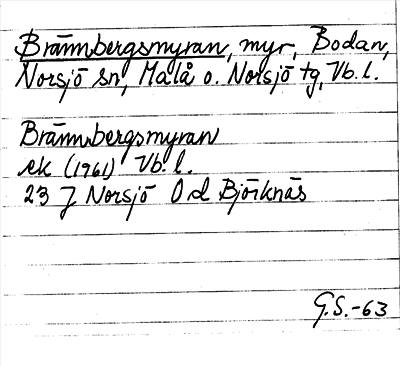 Brännbergsmyran, myr, Bodan,
Norsjö sn, Malå o. Norsjö tg, Vb. l.
Brännbergsmyran
ek (1961) Vb. l.
23 J Norsjö Od Björknäs
G.S.-63